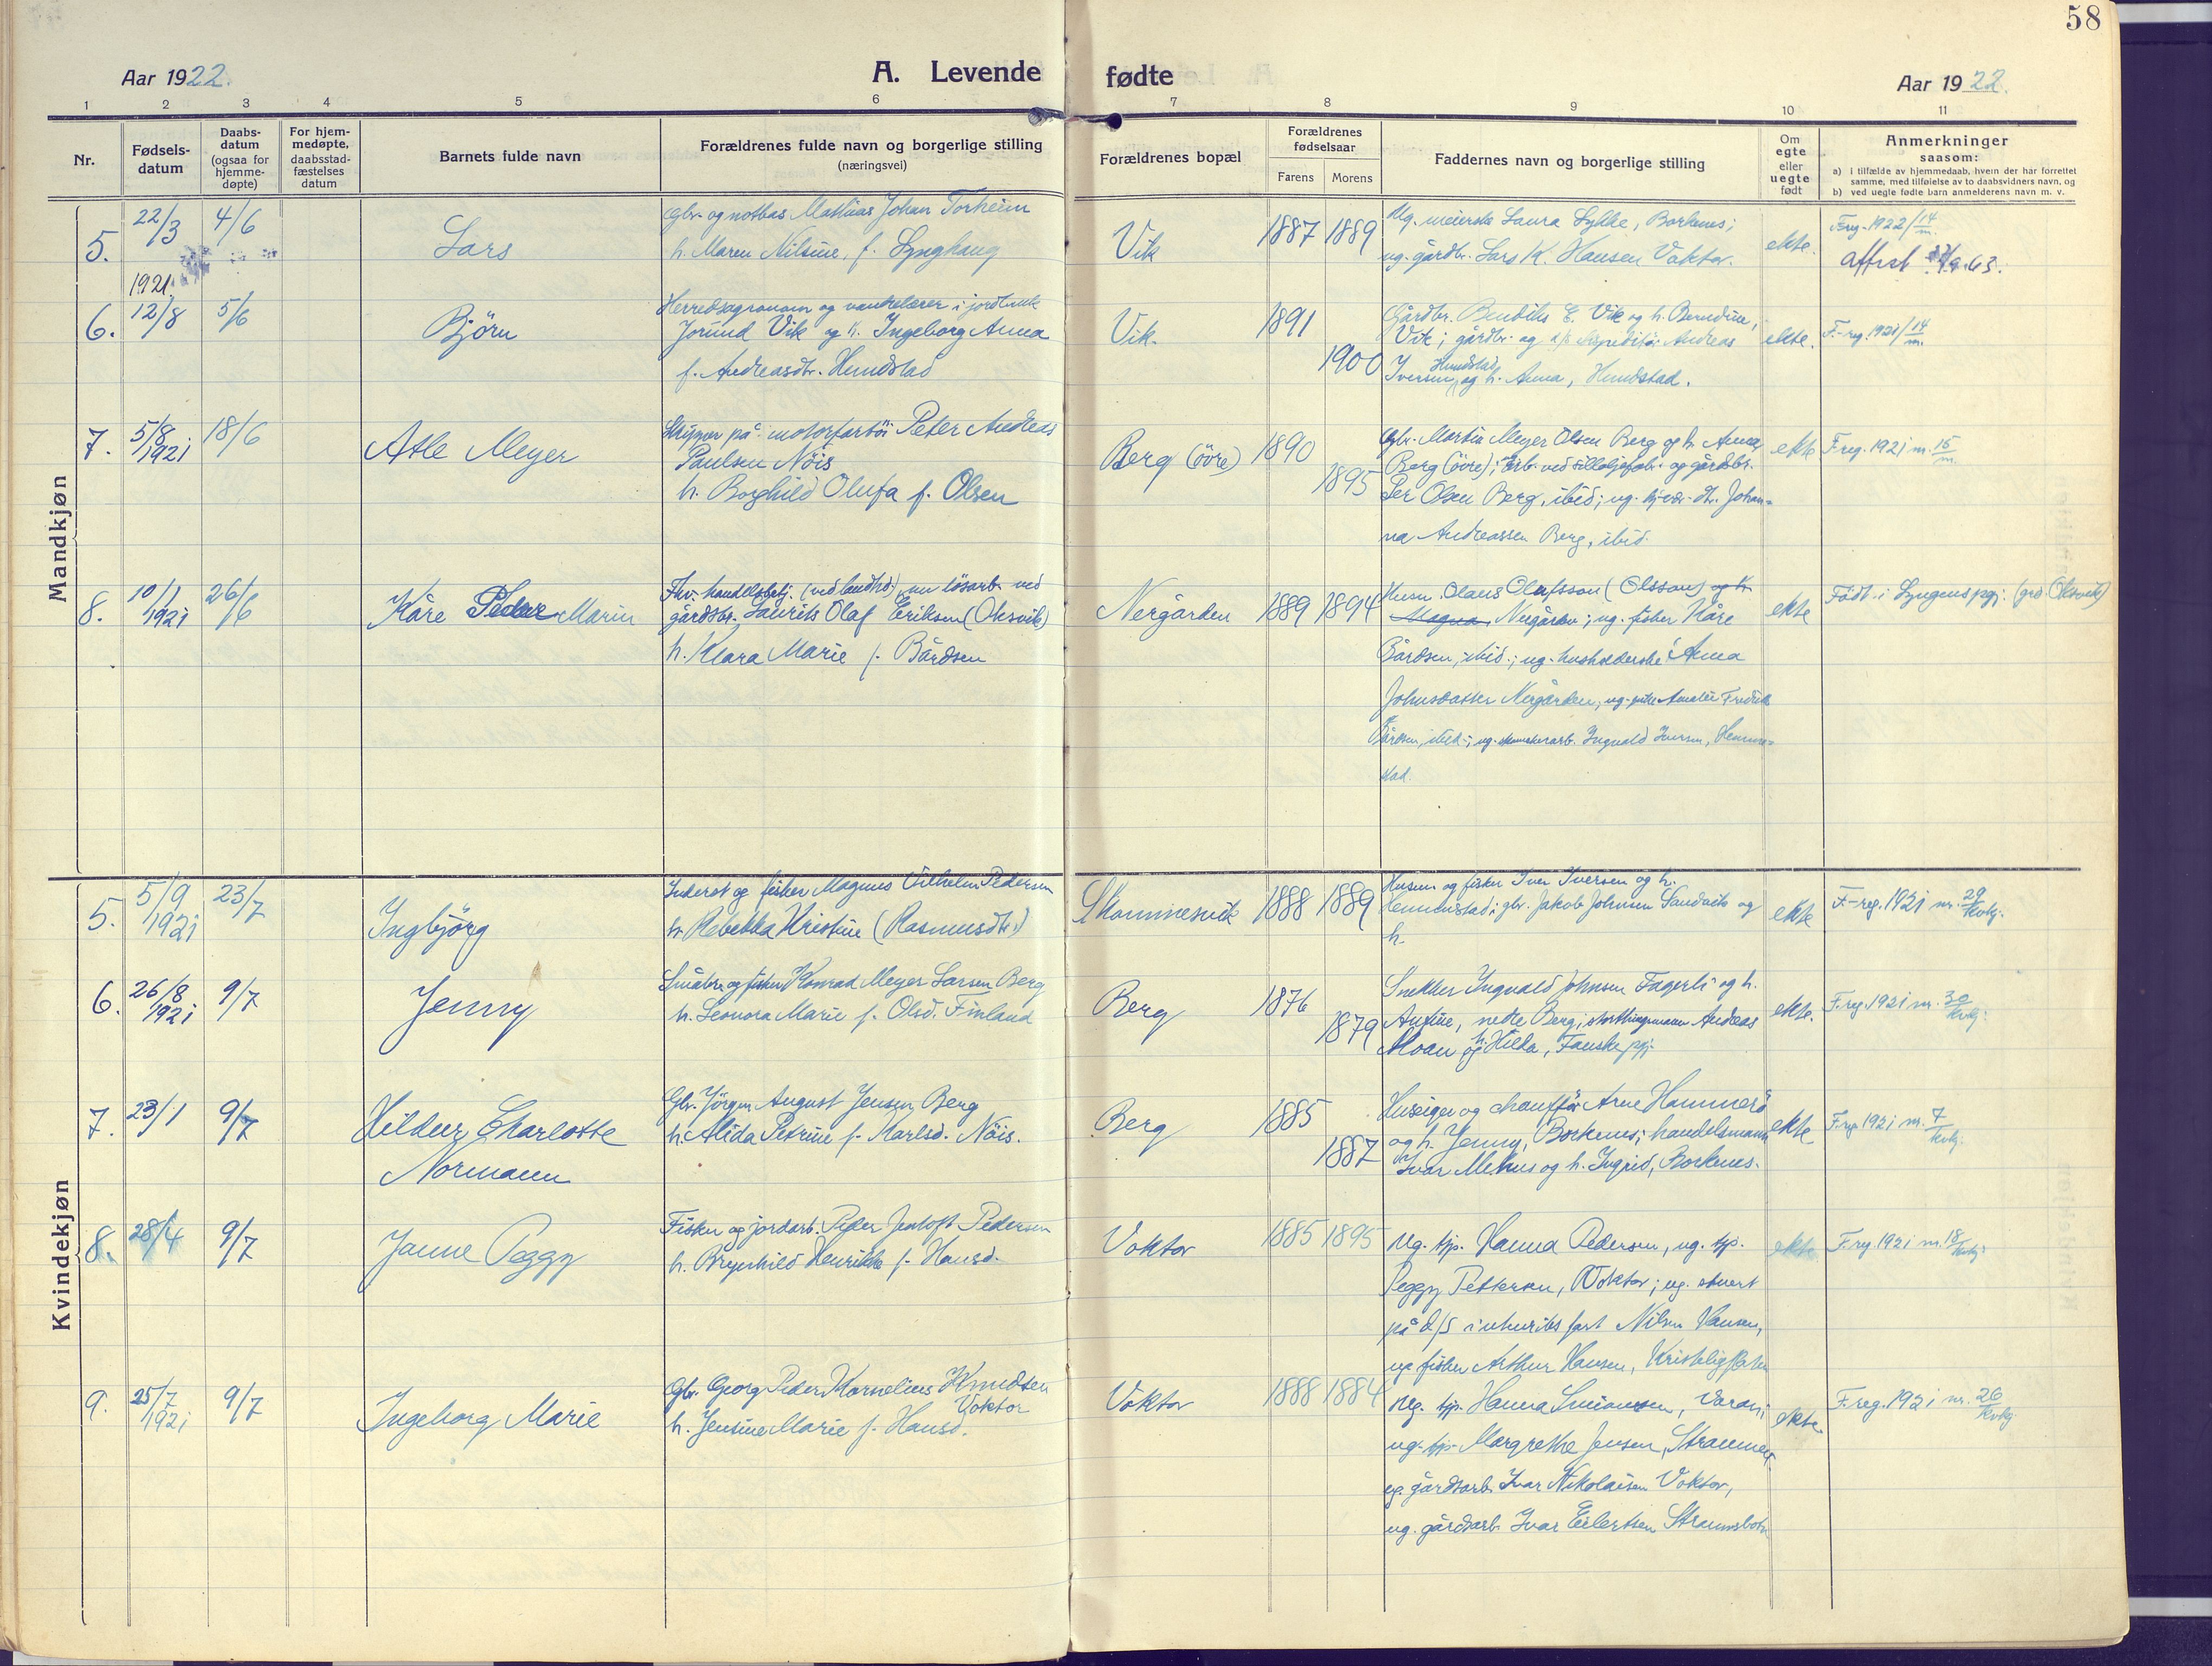 58
Aar 1922.
A. Levende fødte
Aar 1922.
1 2 3 4 5 6 7 8 9 10 11
Nr.
Fødsels-
datum
Daabs-
datum
(ogsaa for
hjemme-
døpte)
For hjem-
medøpte,
daabsstad-
fæstelses
datum
Barnets fulde navn
Forældrenes fulde navn og borgerlige stilling
(næringsvei)
Forældrenes bopæl
Forældrenes
fødselsaar
Farens Morens
Faddernes navn og borgerlige stilling
Om
egte
eller
uegte
født
Anmerkninger
saasom:
a) i tilfælde av hjemmedaab, hvem der har forrettet
samme, med tilføielse av to daabsvidners navn, og
b) ved uegte fødte barn anmelderens navn m. v.
Mandkjøn
5.
22/3
4/6
Lars
Gbr. og notbas Mathias Johan Torheim
h. Maren Nilsine, f. Lynghaug
Vik
1887 1889
Ug. meierske Laura Lykke, Borkenes;
ug. gårdbr. Lars K. Hansen Voktor.
ekte.
F.reg. 1922/14 m.
6.
1921
12/8
5/6
Björn
Herredsagronom og vandrelærer i jordbruk
Jorund Vik og h. Ingeborg Anna
f. Andreasdtr. Hundstad
Vik.
1891
1900
Gårdbr. Bendiks E. Vik og h. Berndine,
Vik; gårdbr. og Andreas
Iversen Hundstad og h. Anna, Hundstad.
ekte.
F.-reg. 1921/14 m.
7.
5/8
1921
18/6
Atle Meyer
Skipper på motorfartöi Peter Andreas
Paulsen Nöis
h. Borghild Olufa f. Olsen
Berg (övre)
1890
1895
Gbr. Martin Meyer Olsen Berg og h. Anna,
Berg (övre); arb. ved sildoljefabr. og gårdbr.
Per Olsen Berg, ibid; ug. hjvær. dtr. Johan-
na Andreassen Berg, ibid.
ekte
F.reg. 1921 nr. 15 m.
8.
10/1
1921
26/6
Kåre Peder Marin
Fhv. handelsbetj. (ved landhd.) nu lösarb. ved
gårdsbr. Laurits Olaf Eriksen (Olsvik)
h. Klara Marie f. Bårdsen
Nergården
1889 1894
Husm. Olaus Olafsson (Olsson) og h.
Magna, Nergården; ug. fisker Kåre
Bårdsen, ibid.; ug. husholderske Anna
Johnsdatter Nergården, ug. pike Amalie Fredrikke
Bårdsen, ibid.; ug. Ingvald Iversen, Hemme-
stad.
ekte
Födt i Lyngens pgj. (grd. Olsvik)
Kvindekjøn
5.
5/9
1921
23/7
Ingbjörg
Inderst og fisker Magnus Vilhelm Pedersen
h. Rebekka Kristine (Rasmusdtr.)
Skommesvik
1888 1889
Husm. og fisker Iver Iversen og h.
Hemmestad; gbr. Jakob Johnsen Sandvik og
h.
ekte
F.-reg. 1921 nr. 29 kvkj.
6.
26/8
1921
9/7
Jenny
Småbr. og fisker Konrad Meyer Larsen Berg
h. Leonora Marie f. Olsd. Finland
Berg
1876
1879
Snekker Ingvald Johnsen Fagerli og h.
Antine, nedre Berg; stortingsmann Andreas
Moan og h. Hilda, Fauske pgj.
ekte.
F.reg. 1921 nr. 30 kvkj.
7.
23/1
9/7
Hildur Charlotte
Normann
Gbr. Jörgen August Jensen Berg
h. Alida Petrine f. Karlsd. Nöis.
Berg
1885
1887
Huseier og chaufför Arne Hammerö
og h. Jenny, Borkenes; handelsmann
Ivar Mekus og h. Ingrid, Borkenes.
ekte
F.reg. 1921 nr. 7 kvkj.
8.
28/4
9/7
Janne Peggy
Fisker og jordarb. Peder Jentoft Pedersen
h. Brynhild Henrikke f. Hansd.
Voktor
1885 1895
Ug. tjp. Hanna Pedersen, ug. tjp.
Peggy Pettersen, Voktor; ug. stuert
på d/s i utenriks fart Nilsen Hansen,
ug. fisker Arthur Hansen,
ekte
F.reg. 1921 nr. 18 kvkj.
9.
25/7
1921
9/7
Ingeborg Marie
Gbr. Georg Peder Kornelius Knudsen
Voktor
h. Jensine Marie f. Hansd.
Voktor
1888 1884
Ug. tjp. Hanna Simonsen,
ug. tjp. Margrethe Jensen, Straumen
ug. gårdsarb. Ivar Nikolaisen Voktor,
ug. gårdsarb. Ivar Eilertsen Straumsbotn
ekte.
F.reg. 1921 nr. 26 kvkj.